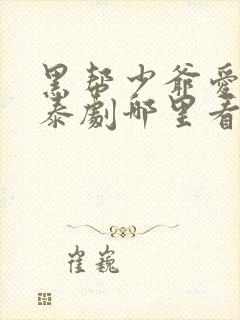 黑帮少爷爱
泰劇哪里看
崔巍